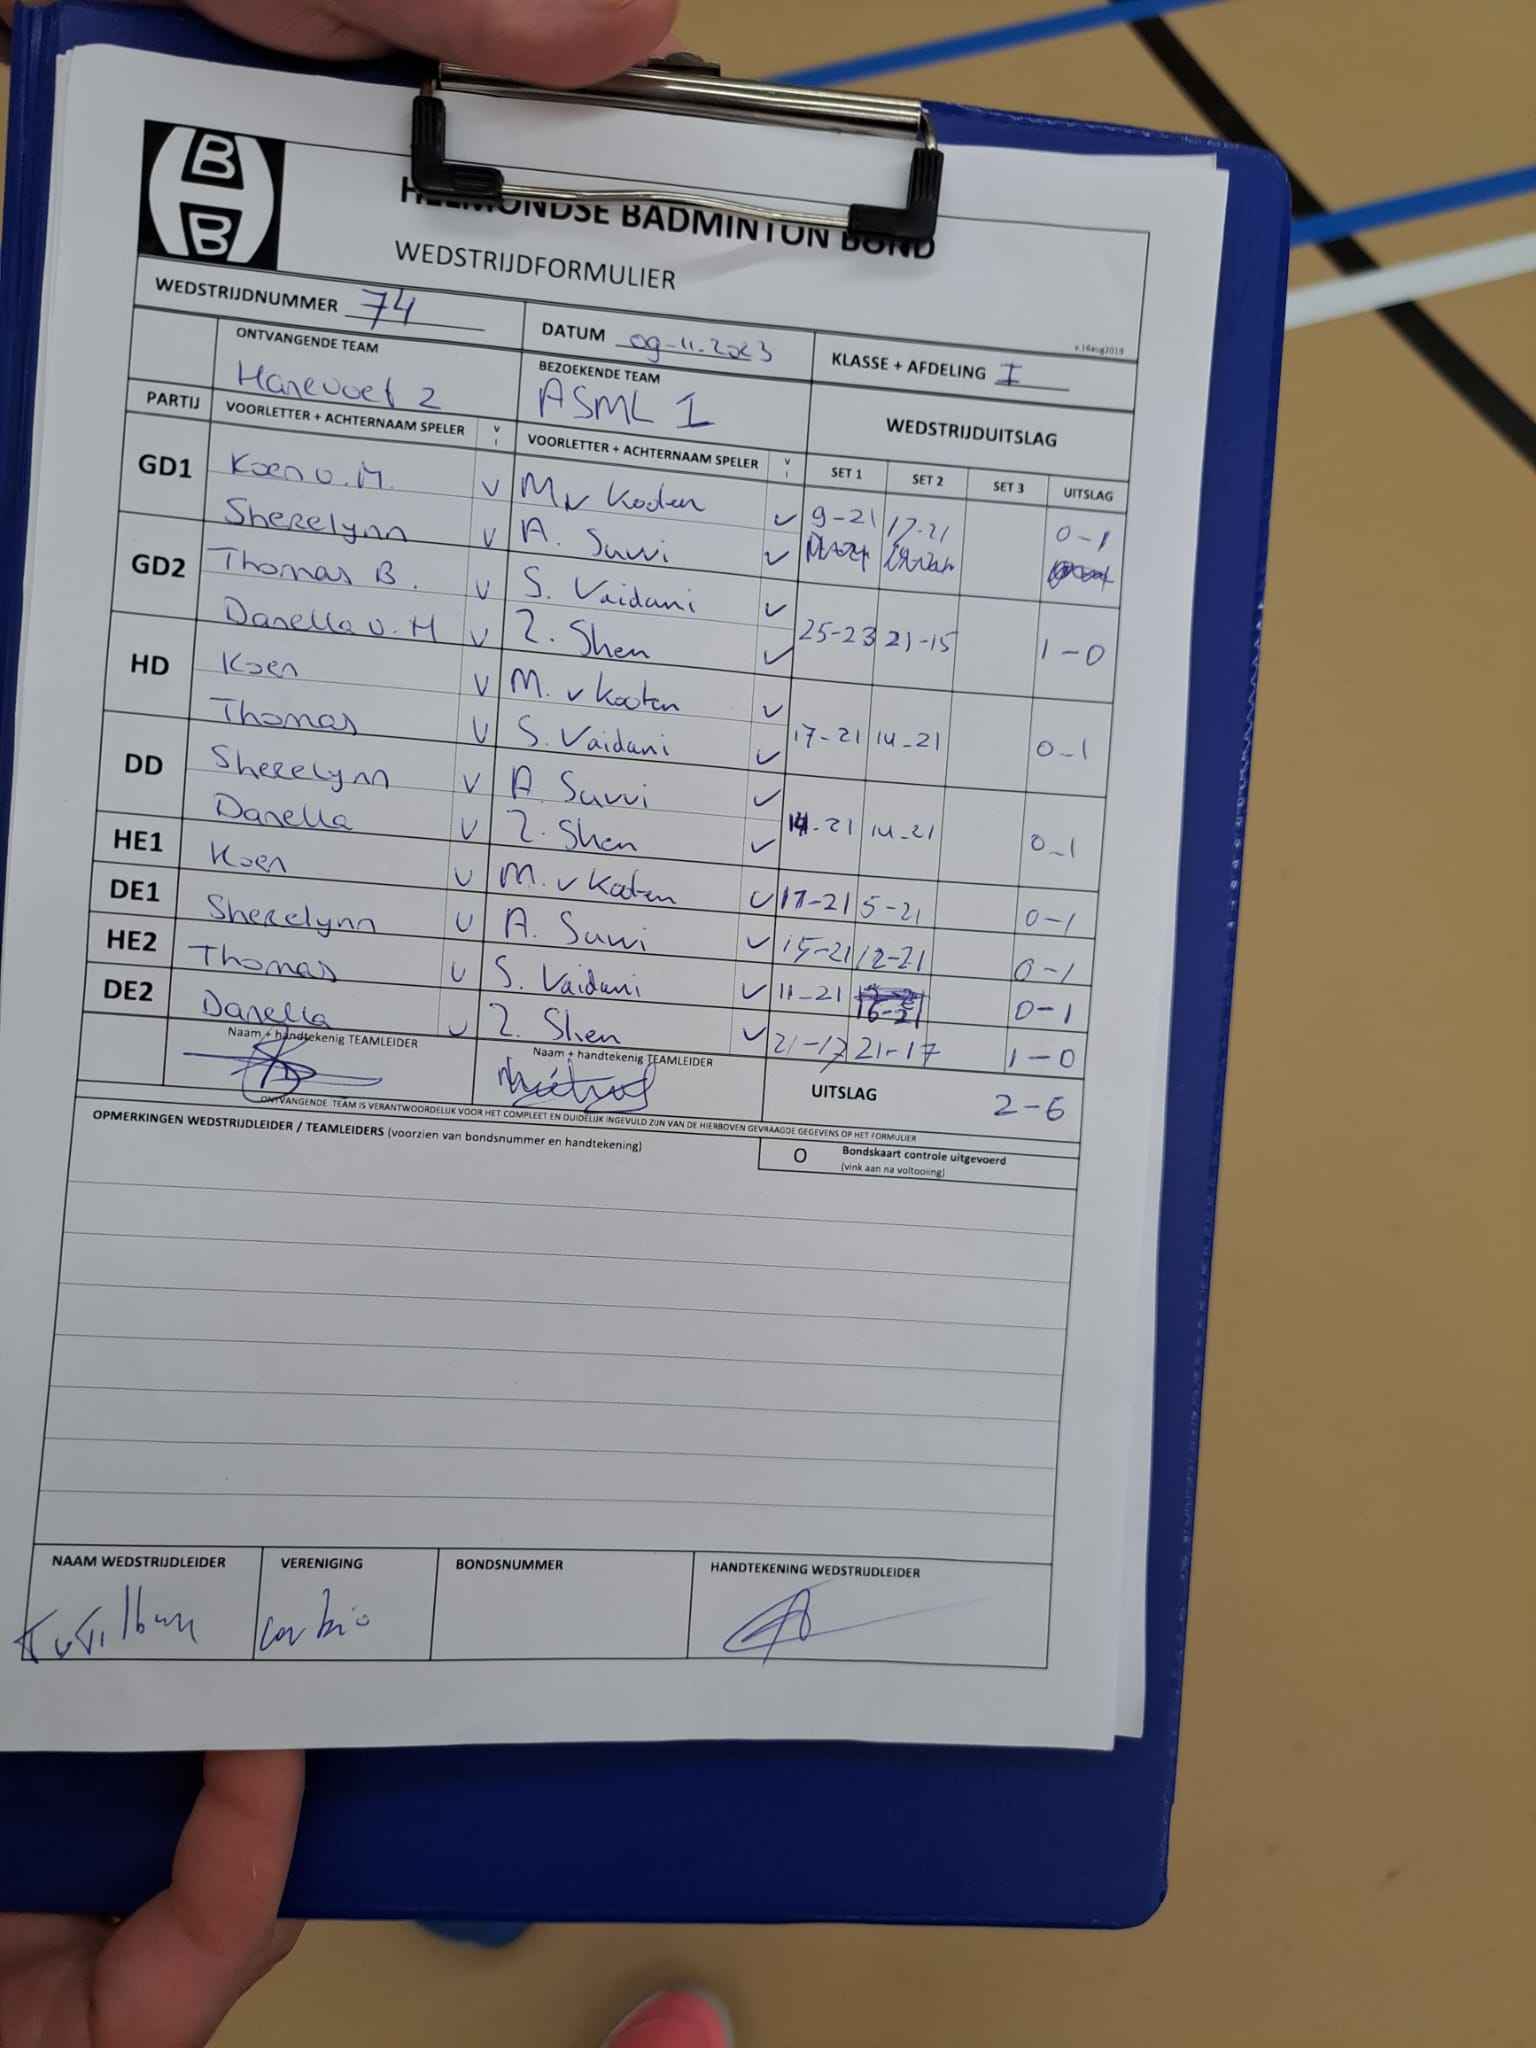 B
B
HELMONDSE BADMINTON BOND
WEDSTRIJDFORMULIER
v.16aug2019
WEDSTRIJDNUMMER 74 DATUM 09-11-2023 KLASSE + AFDELING I
ONTVANGENDE TEAM BEZOEKENDE TEAM
Hanevoet 2 ASML 1 WEDSTRIJDUITSLAG
PARTIJ VOORLETTER + ACHTERNAAM SPELER V I VOORLETTER + ACHTERNAAM SPELER V I SET 1 SET 2 SET 3 UITSLAG
GD1 Koen v. M. v M v Kooten ✓ 9-21 17-21 0-1
Sherelynn v A. Suwi ✓
GD2 Thomas B. v S. Vaidani ✓ 25-23 21-15 1-0
Danella v. M v Z. Shen ✓
HD Koen v M. v Kooten ✓ 17-21 14-21 0-1
Thomas v S. Vaidani ✓
DD Sherelynn v A. Suwi ✓ 14-21 14-21 0-1
Danella v Z. Shen ✓
HE1 Koen v M. v Kooten ✓ 17-21 5-21 0-1
DE1 Sherelynn v A. Suwi ✓ 15-21 12-21 0-1
HE2 Thomas v S. Vaidani ✓ 11-21 16-21 0-1
DE2 Danella v Z. Shen ✓ 21-17 21-17 1-0
Naam + handtekenig TEAMLEIDER Naam + handtekenig TEAMLEIDER
UITSLAG 2-6
ONTVANGENDE TEAM IS VERANTWOORDELIJK VOOR HET COMPLEET EN DUIDELIJK INGEVULD ZIJN VAN DE HIERBOVEN GEVRAAGDE GEGEVENS OP HET FORMULIER
OPMERKINGEN WEDSTRIJDLEIDER / TEAMLEIDERS (voorzien van bondsnummer en handtekening)
O Bondskaart controle uitgevoerd
(vink aan na voltooiing)
NAAM WEDSTRIJDLEIDER VERENIGING BONDSNUMMER HANDTEKENING WEDSTRIJDLEIDER